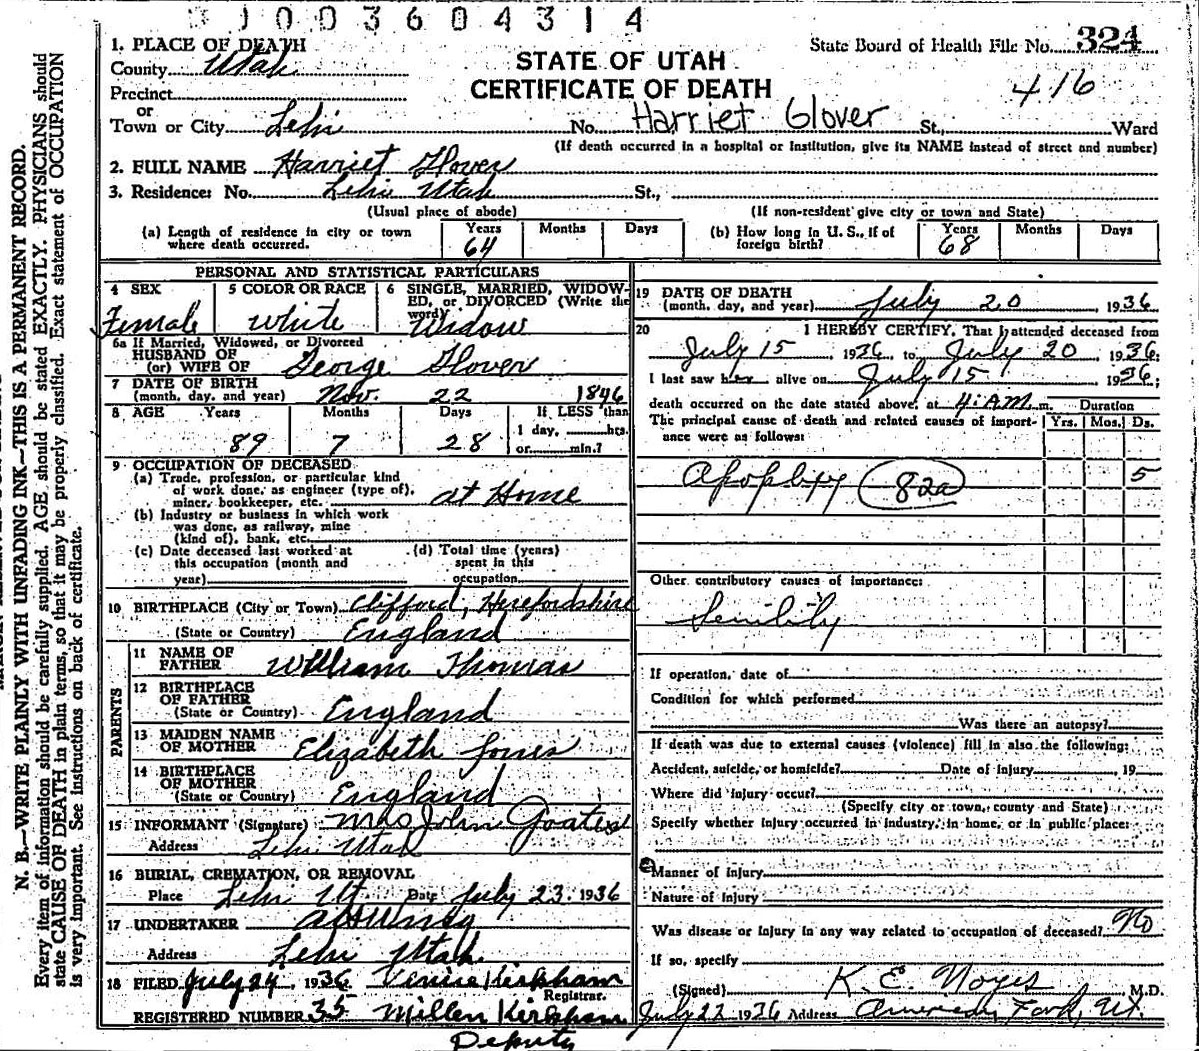 3100360431 4
N. B.—WRITE PLAINLY WITH UNFADING INK—THIS IS A PERMANENT RECORD.
Every item of information should be carefully supplied. AGE should be stated EXACTLY. PHYSICIANS should
state CAUSE OF DEATH in plain terms, so that it may be properly classified. Exact statement of OCCUPATION
is very important. See instructions on back of certificate.
STATE OF UTAH
CERTIFICATE OF DEATH
State Board of Health File No. 324
416
1. PLACE OF DEATH
County Utah
Precinct
or
Town or City Lehi No. Harriet Glover St., Ward
(If death occurred in a hospital or institution, give its NAME instead of street and number)
2. FULL NAME Harriet Glover
3. Residence: No. Lehi Utah St.,
(Usual place of abode) (If non-resident give city or town and State)
(a) Length of residence in city or town where death occurred. Years 64 Months Days
(b) How long in U. S., if of foreign birth? Years 68 Months Days
PERSONAL AND STATISTICAL PARTICULARS
4 SEX Female
5 COLOR OR RACE White
6 SINGLE, MARRIED, WIDOWED, or DIVORCED (Write the word) Widow
6a If Married, Widowed, or Divorced
HUSBAND OF
(or) WIFE OF George Glover
7 DATE OF BIRTH
(month, day, and year) Nov. 22 1846
8 AGE Years 89 Months 7 Days 28 If LESS than 1 day, hrs. or min.?
9 OCCUPATION OF DECEASED
(a) Trade, profession, or particular kind of work done, as engineer (type of), miner, bookkeeper, etc. at Home
(b) Industry or business in which work was done, as railway, mine (kind of), bank, etc.
(c) Date deceased last worked at this occupation (month and year)
(d) Total time (years) spent in this occupation
10 BIRTHPLACE (City or Town) Clifford, Herefordshire
(State or Country) England
PARENTS
11 NAME OF FATHER William Thomas
12 BIRTHPLACE OF FATHER
(State or Country) England
13 MAIDEN NAME OF MOTHER Elizabeth Jones
14 BIRTHPLACE OF MOTHER
(State or Country) England
15 INFORMANT (Signature) Mrs John Goates
Address Lehi Utah
16 BURIAL, CREMATION, OR REMOVAL
Place Lehi Ut Date July 23. 1936
17 UNDERTAKER
Address Lehi Utah
18 FILED July 24, 1936 Venice Kirkham
Registrar.
REGISTERED NUMBER 35 Millen Kirkham
Deputy
19 DATE OF DEATH
(month, day, and year) July 20 1936
20 I HEREBY CERTIFY, That I attended deceased from
July 15, 1936, to July 20 1936;
I last saw her alive on July 15 1936;
death occurred on the date stated above, at 4: A.M. m. Duration
The principal cause of death and related causes of importance were as follows: Yrs. Mos. Ds.
Apoplexy 82a 5
Other contributory causes of importance:
Senility
If operation, date of
Condition for which performed
Was there an autopsy?
If death was due to external causes (violence) fill in also the following:
Accident, suicide, or homicide? Date of injury , 19
Where did injury occur?
(Specify city or town, county and State)
Specify whether injury occurred in industry, in home, or in public place:
Manner of Injury
Nature of Injury
Was disease or injury in any way related to occupation of deceased? No
If so, specify
(Signed) K. E. Noyes M.D.
July 22 1936 Address American Fork, Ut.